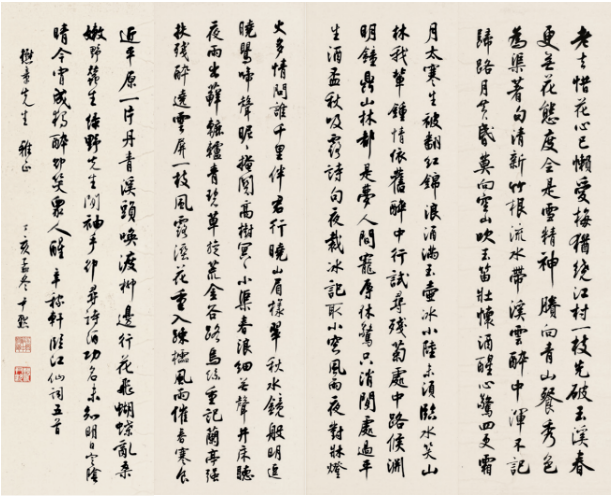 老去惜花心已懶愛梅猶繞江村一枝先破玉溪春
更無花態度全是雪精神賸向青山餐秀色
為渠著句清新竹根流水帶溪雲醉中渾不記
歸路月黃昏莫向空山吹玉笛壯懷酒醒心驚四更霜
月太寒生被翻紅錦浪酒滿玉壺冰小陸未須臨水笑山
林我輩鍾情依舊醉中行試尋殘菊處中路候淵
明鐘鼎山林都是夢人間寵辱休驚只消閒處過平
生酒盃秋吸露詩句夜裁冰記取小窗風雨夜對牀燈
火多情問誰千里伴君行曉山眉樣翠秋水鏡般明逗
曉鶯啼聲昵昵掩關高樹冥冥小渠春浪細無聲井床聽
夜雨出蘚轆轤青碧草旋荒金谷路烏絲重記蘭亭強
扶殘醉遶雲屏一枝風露濕花重入疎櫺風雨催春寒食
近平原一片丹青溪頭喚渡柳邊行花飛蝴蝶亂桑
嫩野蠶生綠野先生閒袖手卻尋詩酒功名未知明日定陰
晴今宵成獨醉卻笑眾人醒辛稼軒臨江仙詞五首
懋先生雅正
丁亥孟冬尹默